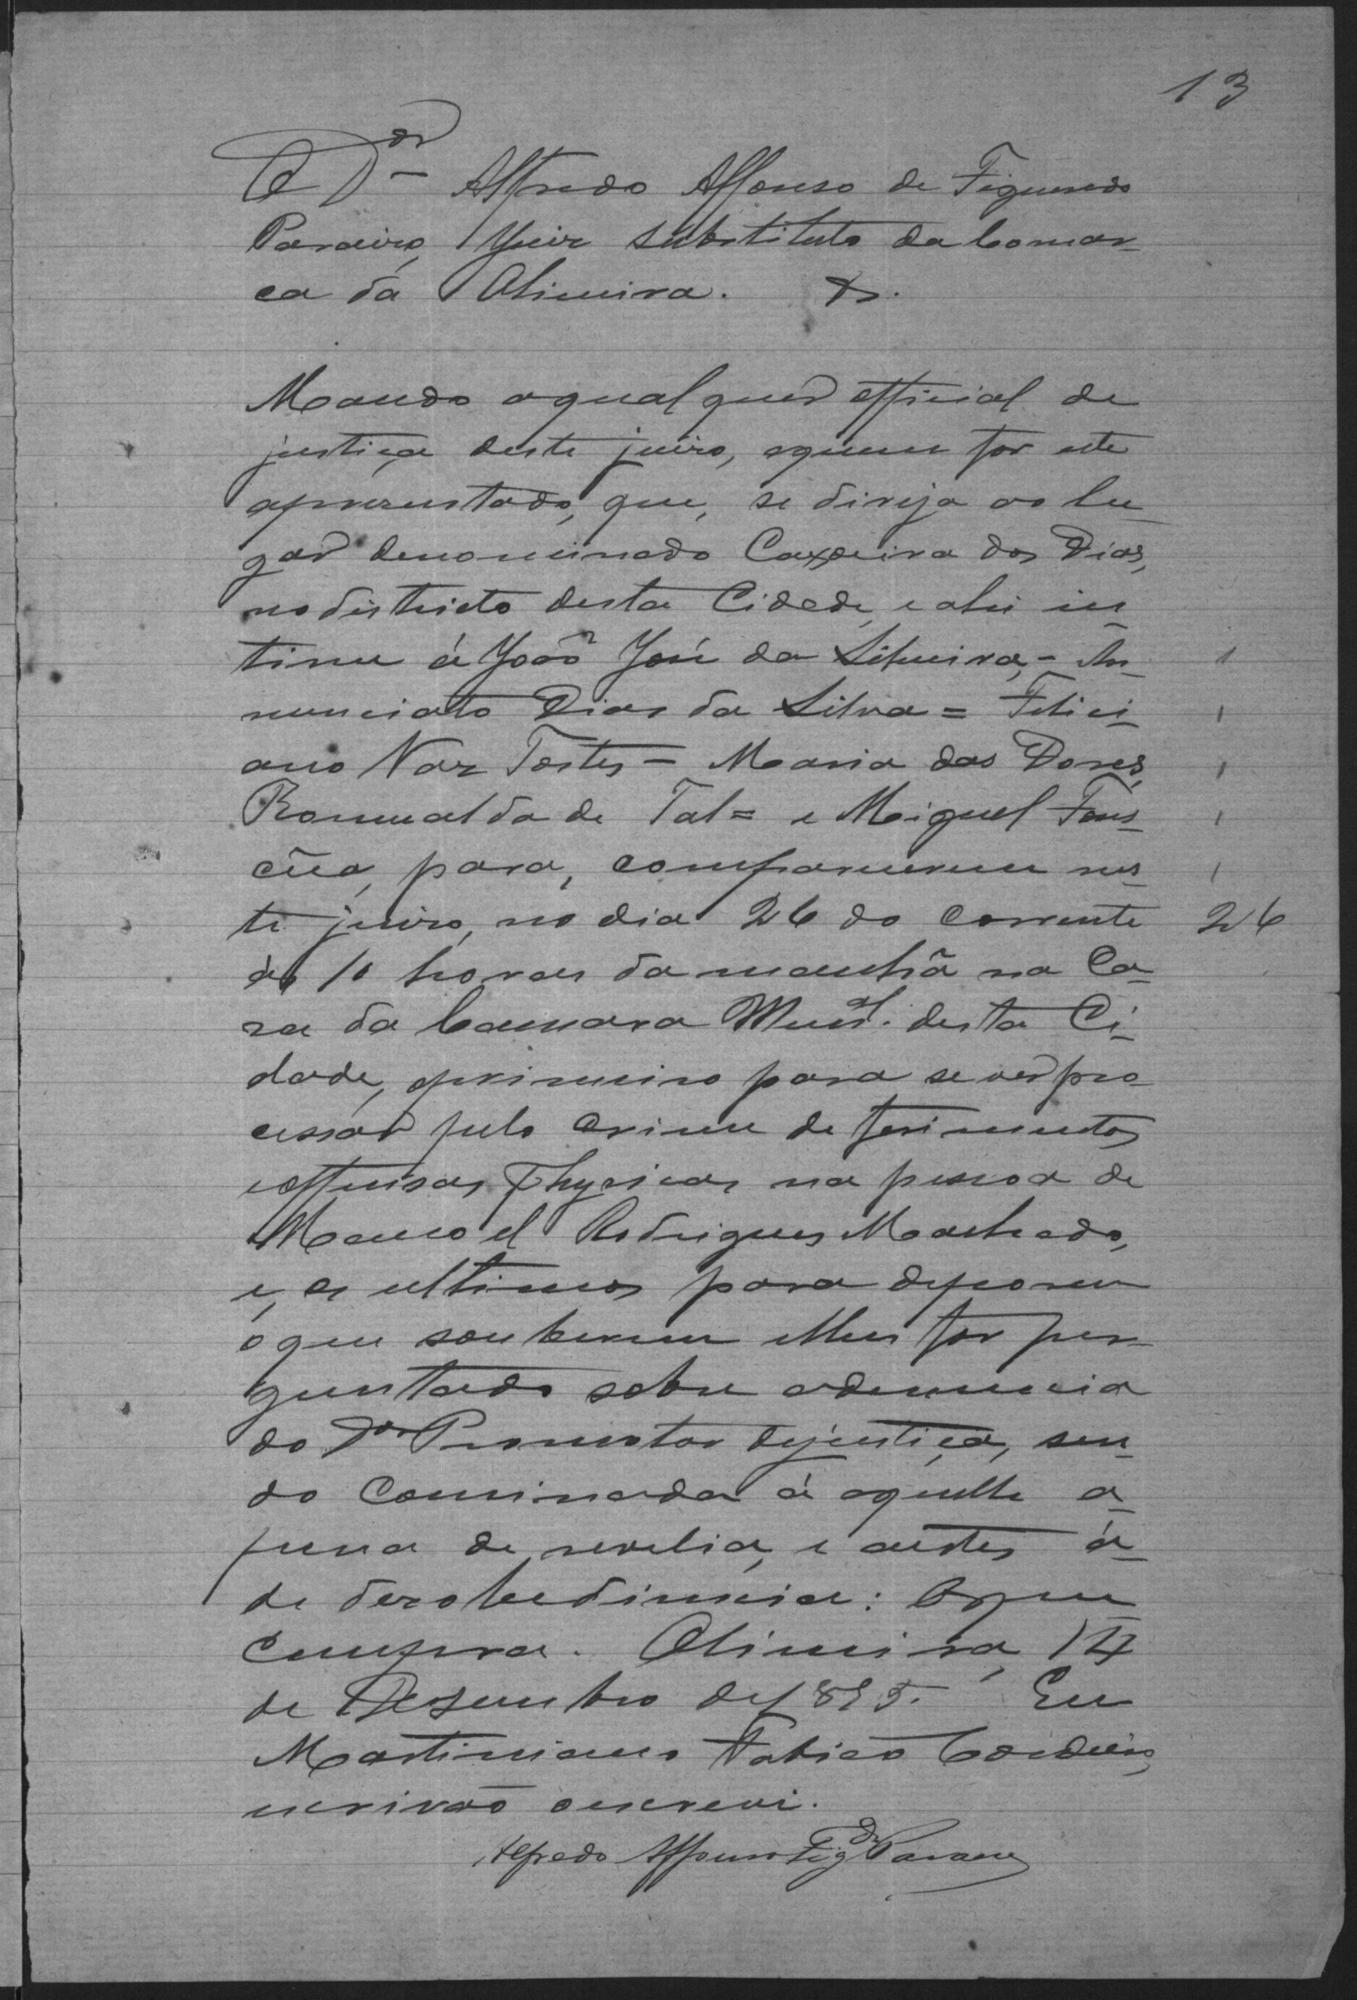 13
O Dor Alfredo Affonso de Figueredo
Paraizo, Juiz substituto da Comar-
ca da Olimeira. &.
Mando aqualquer official de
justiça deste juizo, aquem for este
aprezentado, que, se dirija ao lu-
gar denominado Caxoeira dos Dias,
no districto desta Cidade, e ahi in-
time á João José da Silveira, - An-
nunciato Dias da Silva = Felici-
ano Vaz Tostes - Maria das Dores,
Romualda de Tal = e Miguel
para, comparecerem nes-
te juizo, no dia 26 do corrente 26
ás 10 horas da manhã na Ca-
za da Camara Munal. desta Ci-
dade, oprimeiro para se ver pro-
cessar pelo crime de ferimentos
e offensas physicas na pessoa de
Manoel Rodrigues Machado,
e, os ultimos para deporem
oque souberem elhes for per-
guntado sobre adenuncia
do Dor Promotor dejustiça, sen-
do Cominada á aquelle a
pena de revelia, e aestes á
de dezobediencia: Oque
cumpra. Olimeira, 14
de Dezembro de 1895. Eu
Martiniano Fabião Cordeiro,
escrivão oescrevi.
Alfredo Affonso Figdo Paraizo